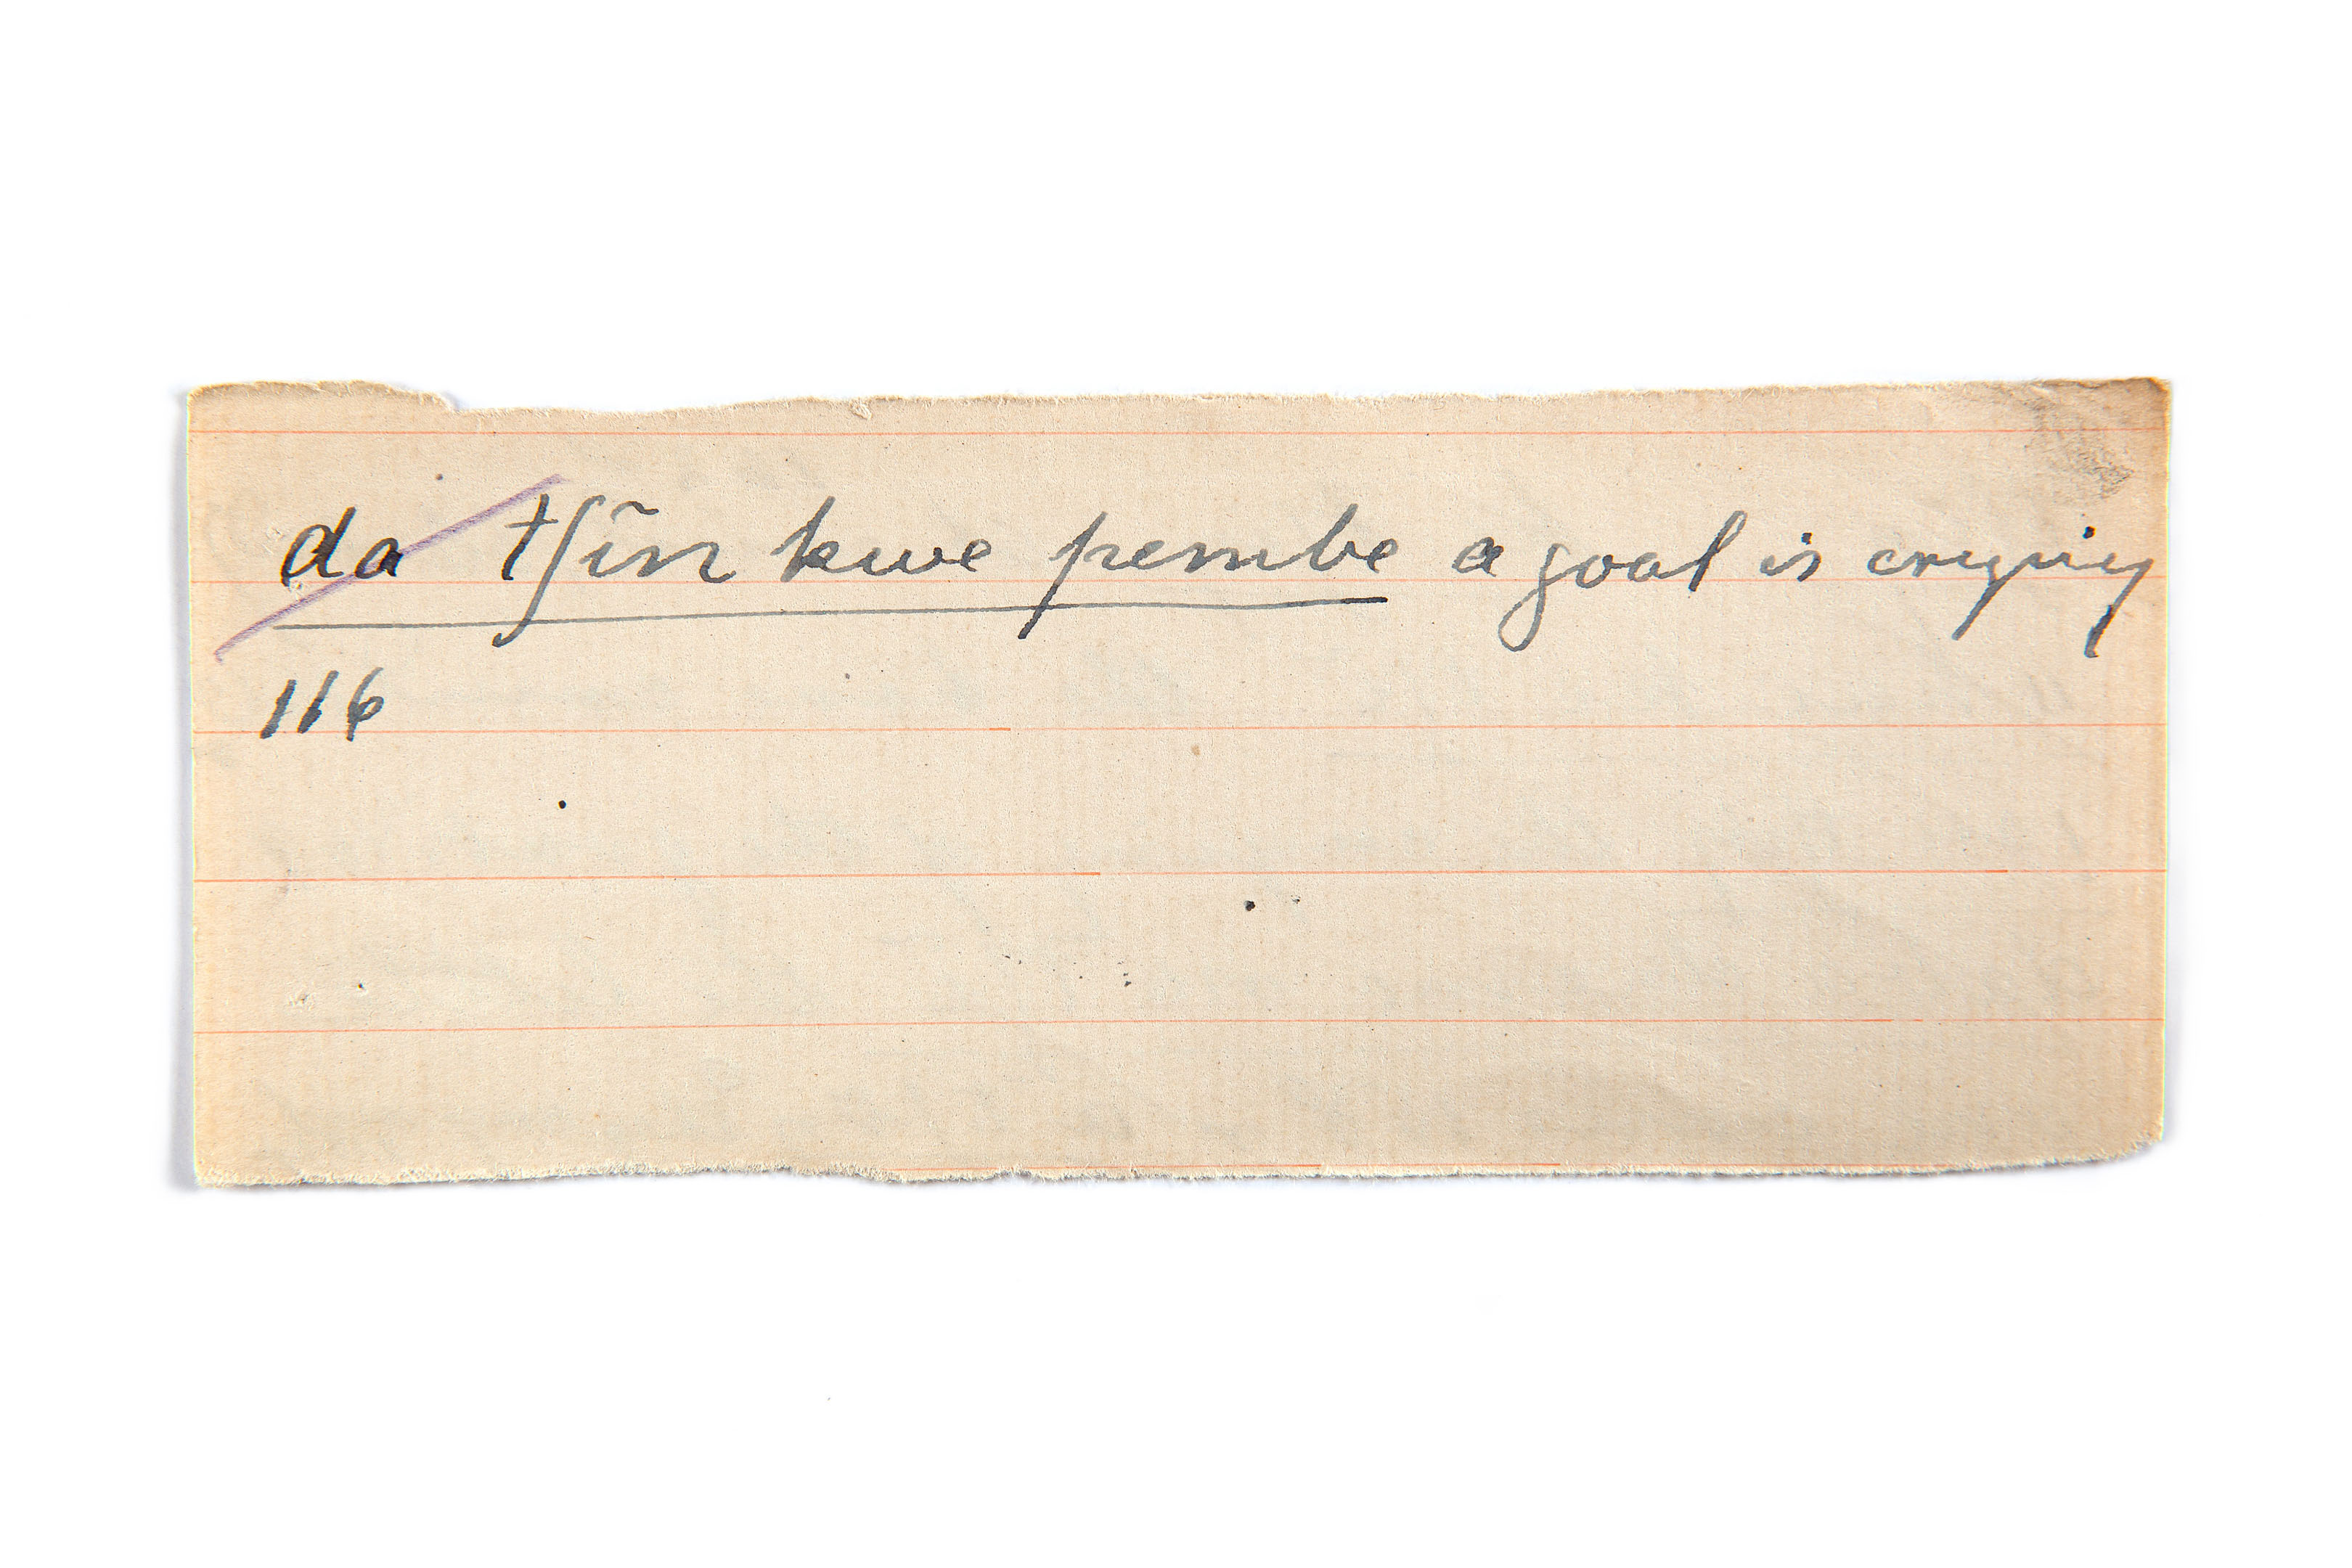 da tʃĩn kwe pembe a goal is crying
116